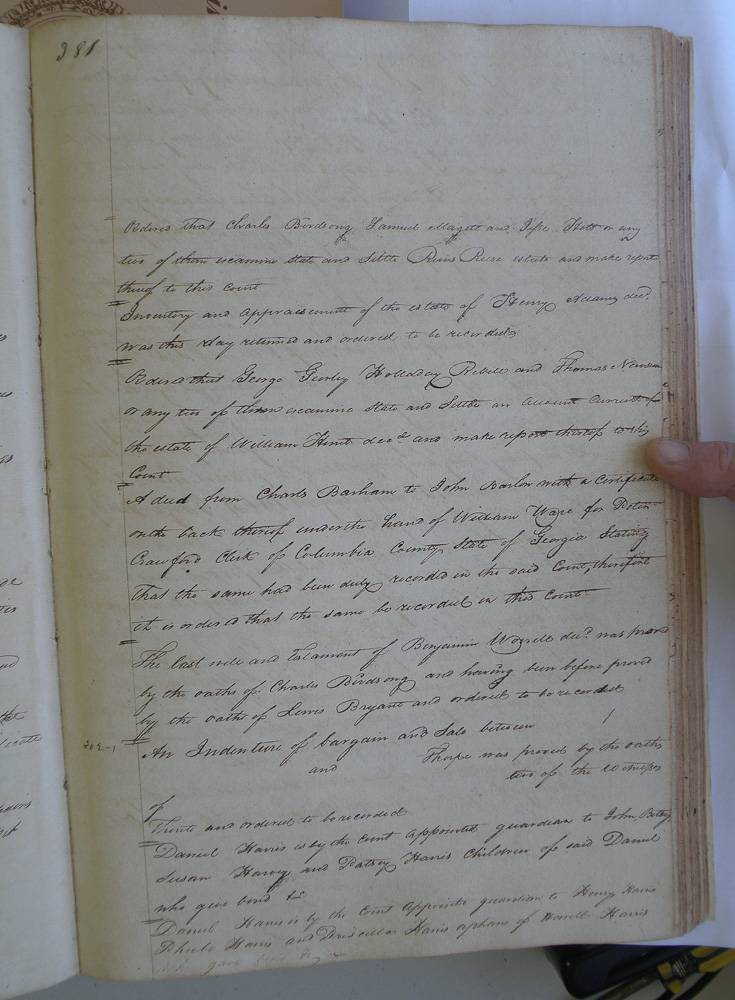 381
Ordered that Charles Birdsong Samuel Magett and Jesse Holt or any
two of them examine state and Settle Reese estate and make report
thereof to this Court
Inventory and appraisement of the estate of Henry Adams decd.
was this day returned and ordered to be recorded
Ordered that George Gurley Holladay Revell and Thomas Newsum
or any two of them examine State and Settle an Account Current of
the estate of William Hunt decd and make report thereof to this
Court
A deed from Charls Barham to John Barlow with a Certificate
on the back thereof under the hand of William Ware for
Crawford Clerk of Columbia County State of Georgia Stating
that the same had been duly recorded in the said Court, therefore
it is ordered that the same be recorded in this Court
The last will and testament of Benjamin Worrell decd. was proved
by the oaths of Charles Birdsong and having been before proved
by the oaths of Lewis Bryant and ordered to be recorded
An Indenture of bargain and Sale between
and Thorpe was proved by the oaths
of two of the witnesses
thereto and ordered to be recorded
Daniel Harris is by the Court appointed guardian to John, Betsy
Susan Harvey and Patsey Harris Children of said Daniel
who gave bond &c
Daniel Harris is by the Court appointed guardian to Henry Harris
Phebe Harris and Driscilla Harris orphans of Howell Harris
who gave bond &c